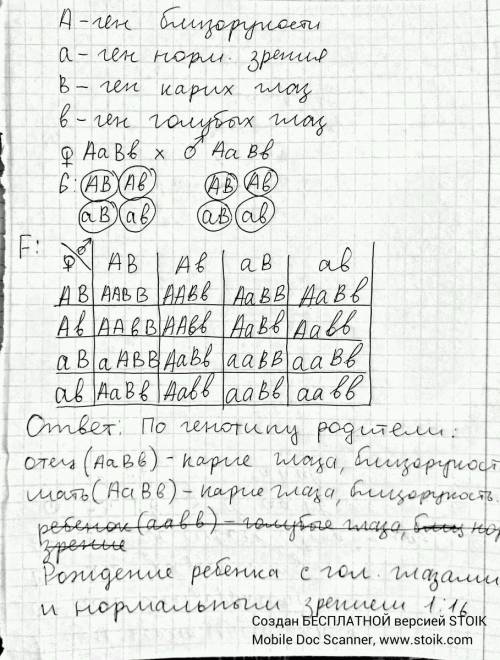 А-ген близорукости
а-ген норм. зрения
В-ген карих глаз
в-ген голубых глаз
♀ АаВв × ♂ АаВв
G: АВ Ав АВ Ав
аВ ав аВ ав
F: ♀ ♂ АВ Ав аВ ав
АВ ААВВ ААВв АаВВ АаВв
Ав ААвВ ААвв АаВв Аавв
аВ аАВВ АаВв ааВВ ааВв
ав АаВв Аавв ааВв аавв
Ответ: По генотипу родители:
отец (АаВв) - карие глаза, близорукост
мать (АаВв) - карие глаза, близорукость.
ребенок (аавв) - голубые глаза, близ нор
зрение
Рождение ребенка с гол. глазами
и нормальным зрением 1:16
Создан БЕСПЛАТНОЙ версией STOIK
Mobile Doc Scanner, www.stoik.com